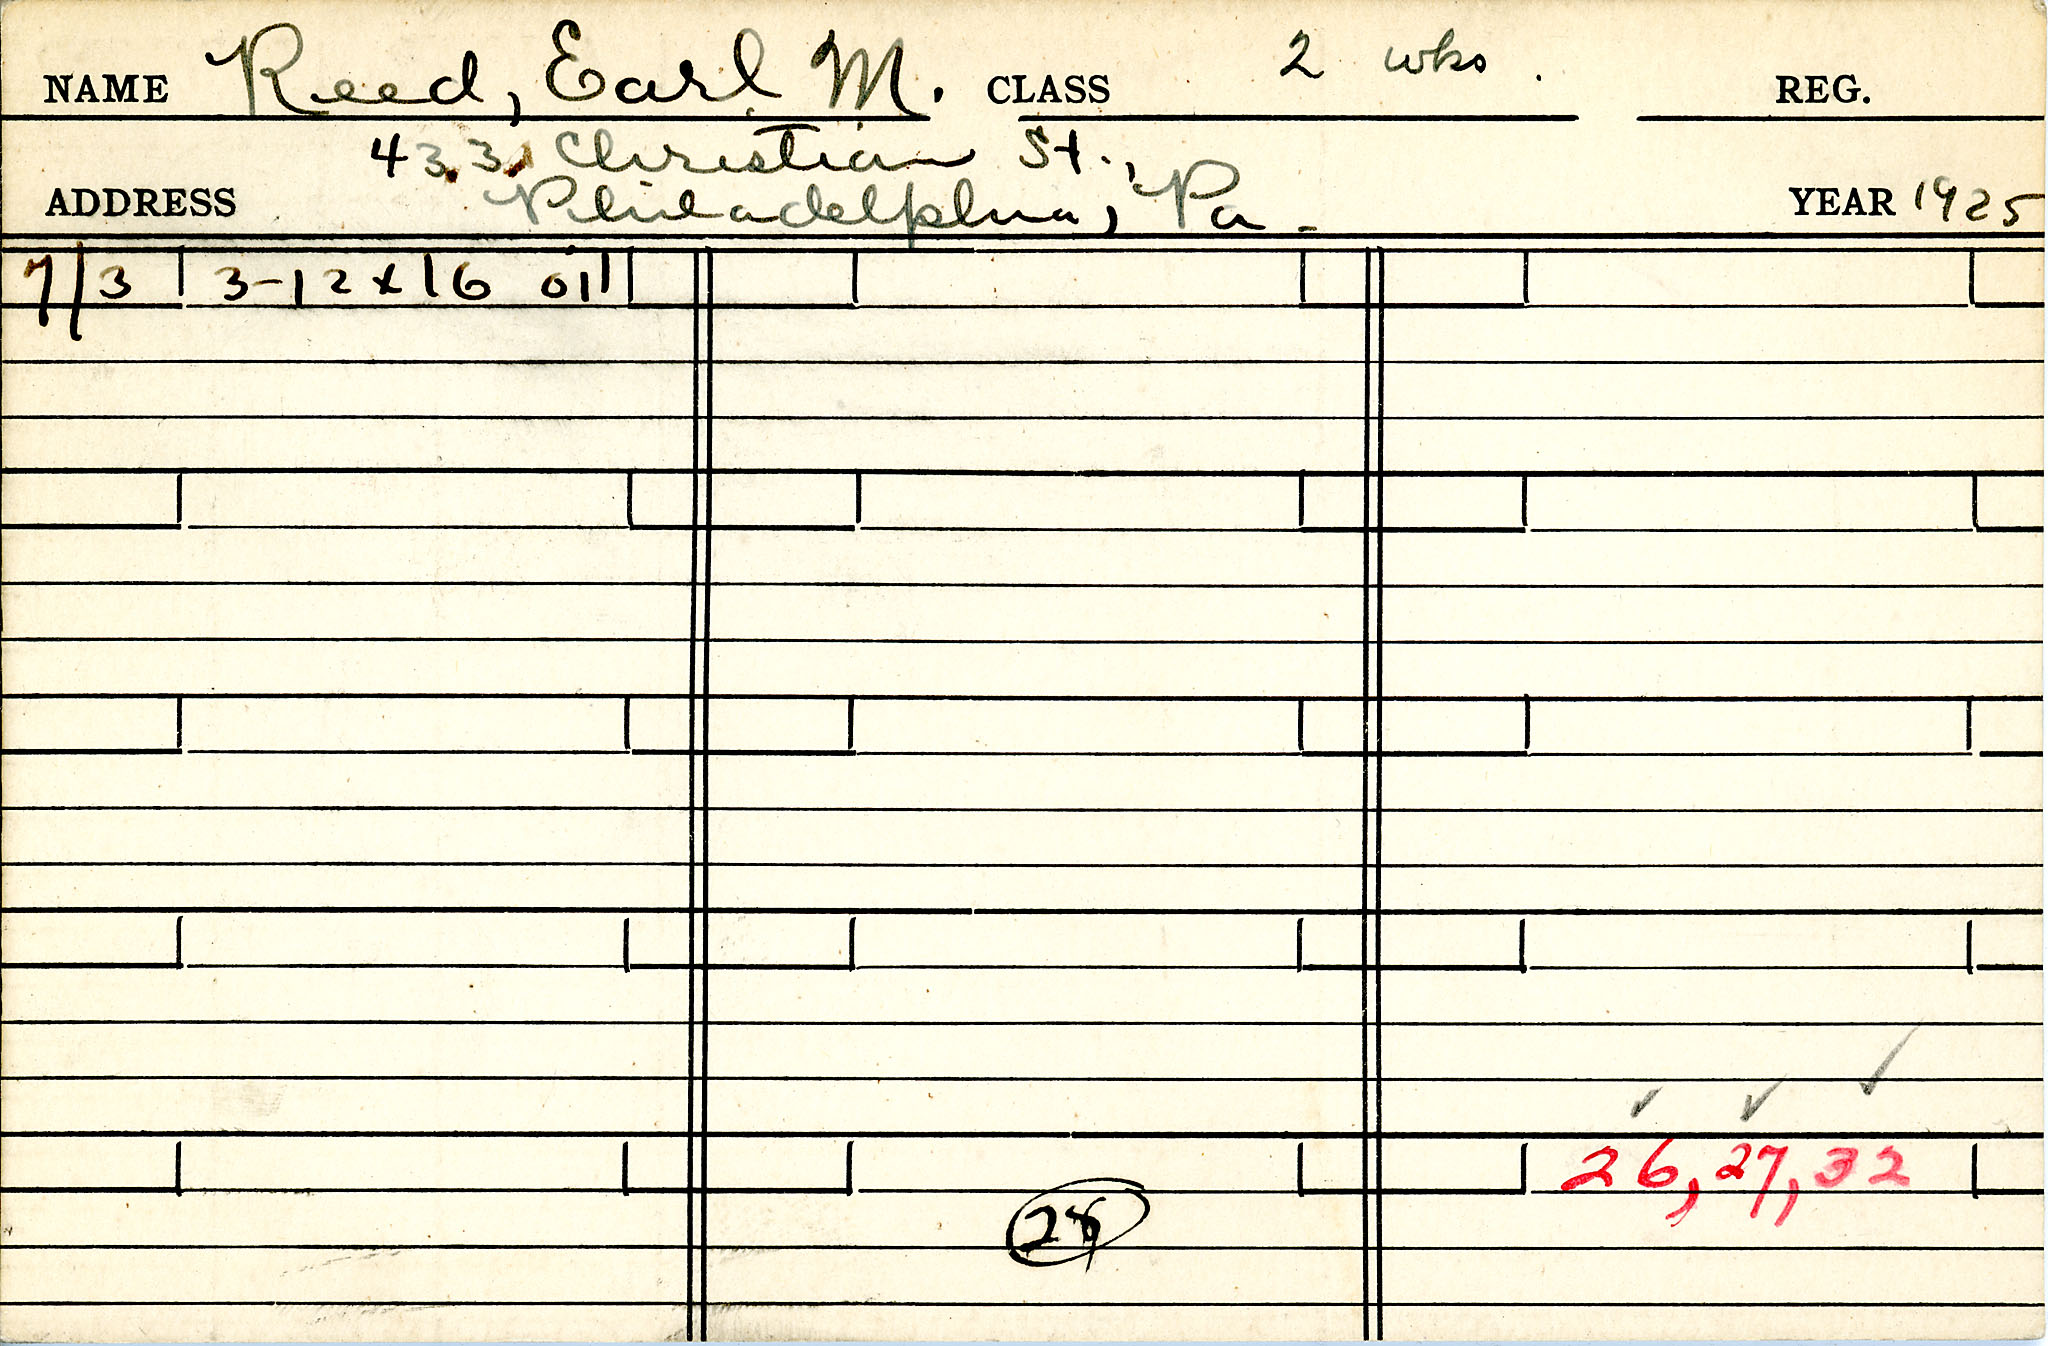 NAME Reed, Earl M. CLASS 2 wks. REG.
433 Christian St.,
ADDRESS Philadelphia, Pa. YEAR 1925
7/3 3-12 x 16 oil
26, 27, 32